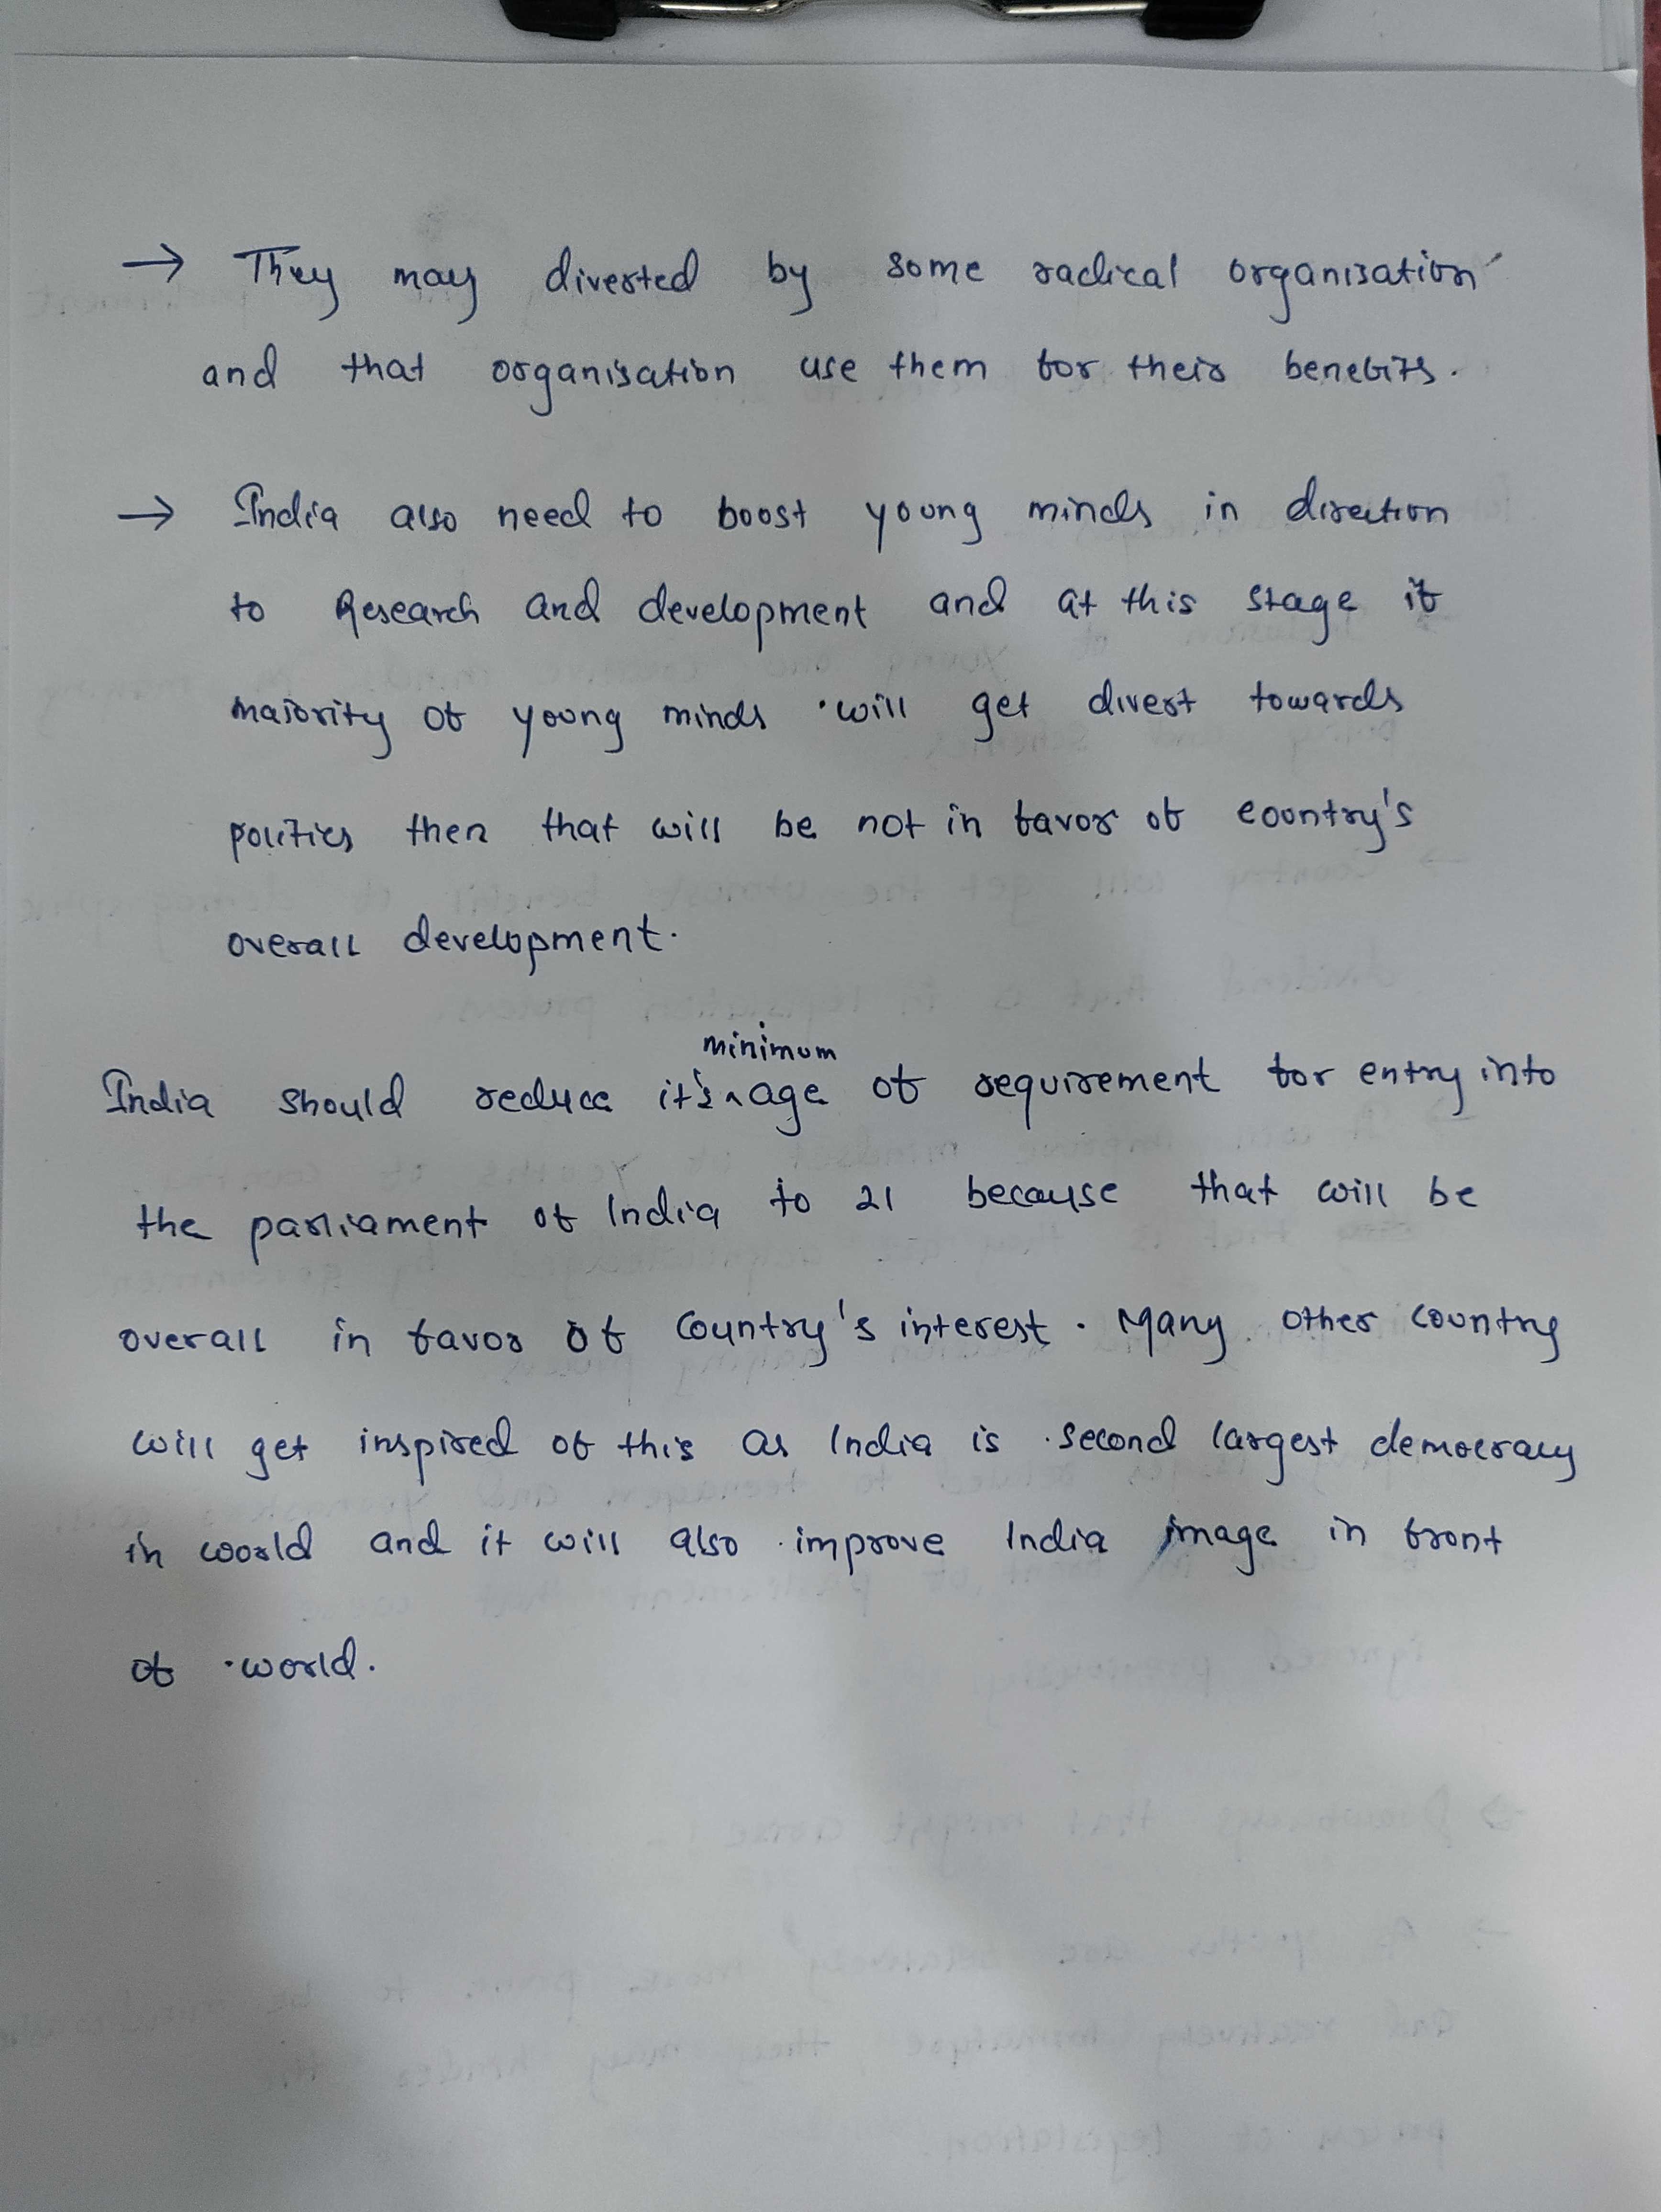 → They may diverted by some radical organisation
and that organisation use them for their benefits.
→ India also need to boost young minds in direction
to Research and development and at this stage if
majority of young minds will get divert towards
politics then that will be not in favor of country's
overall development.
minimum
India should reduce it's ^ age of requirement for entry into
the parliament of India to 21 because that will be
overall in favor of Country's interest. Many other country
will get inspired of this as India is second largest democracy
in world and it will also improve India image in front
of world.